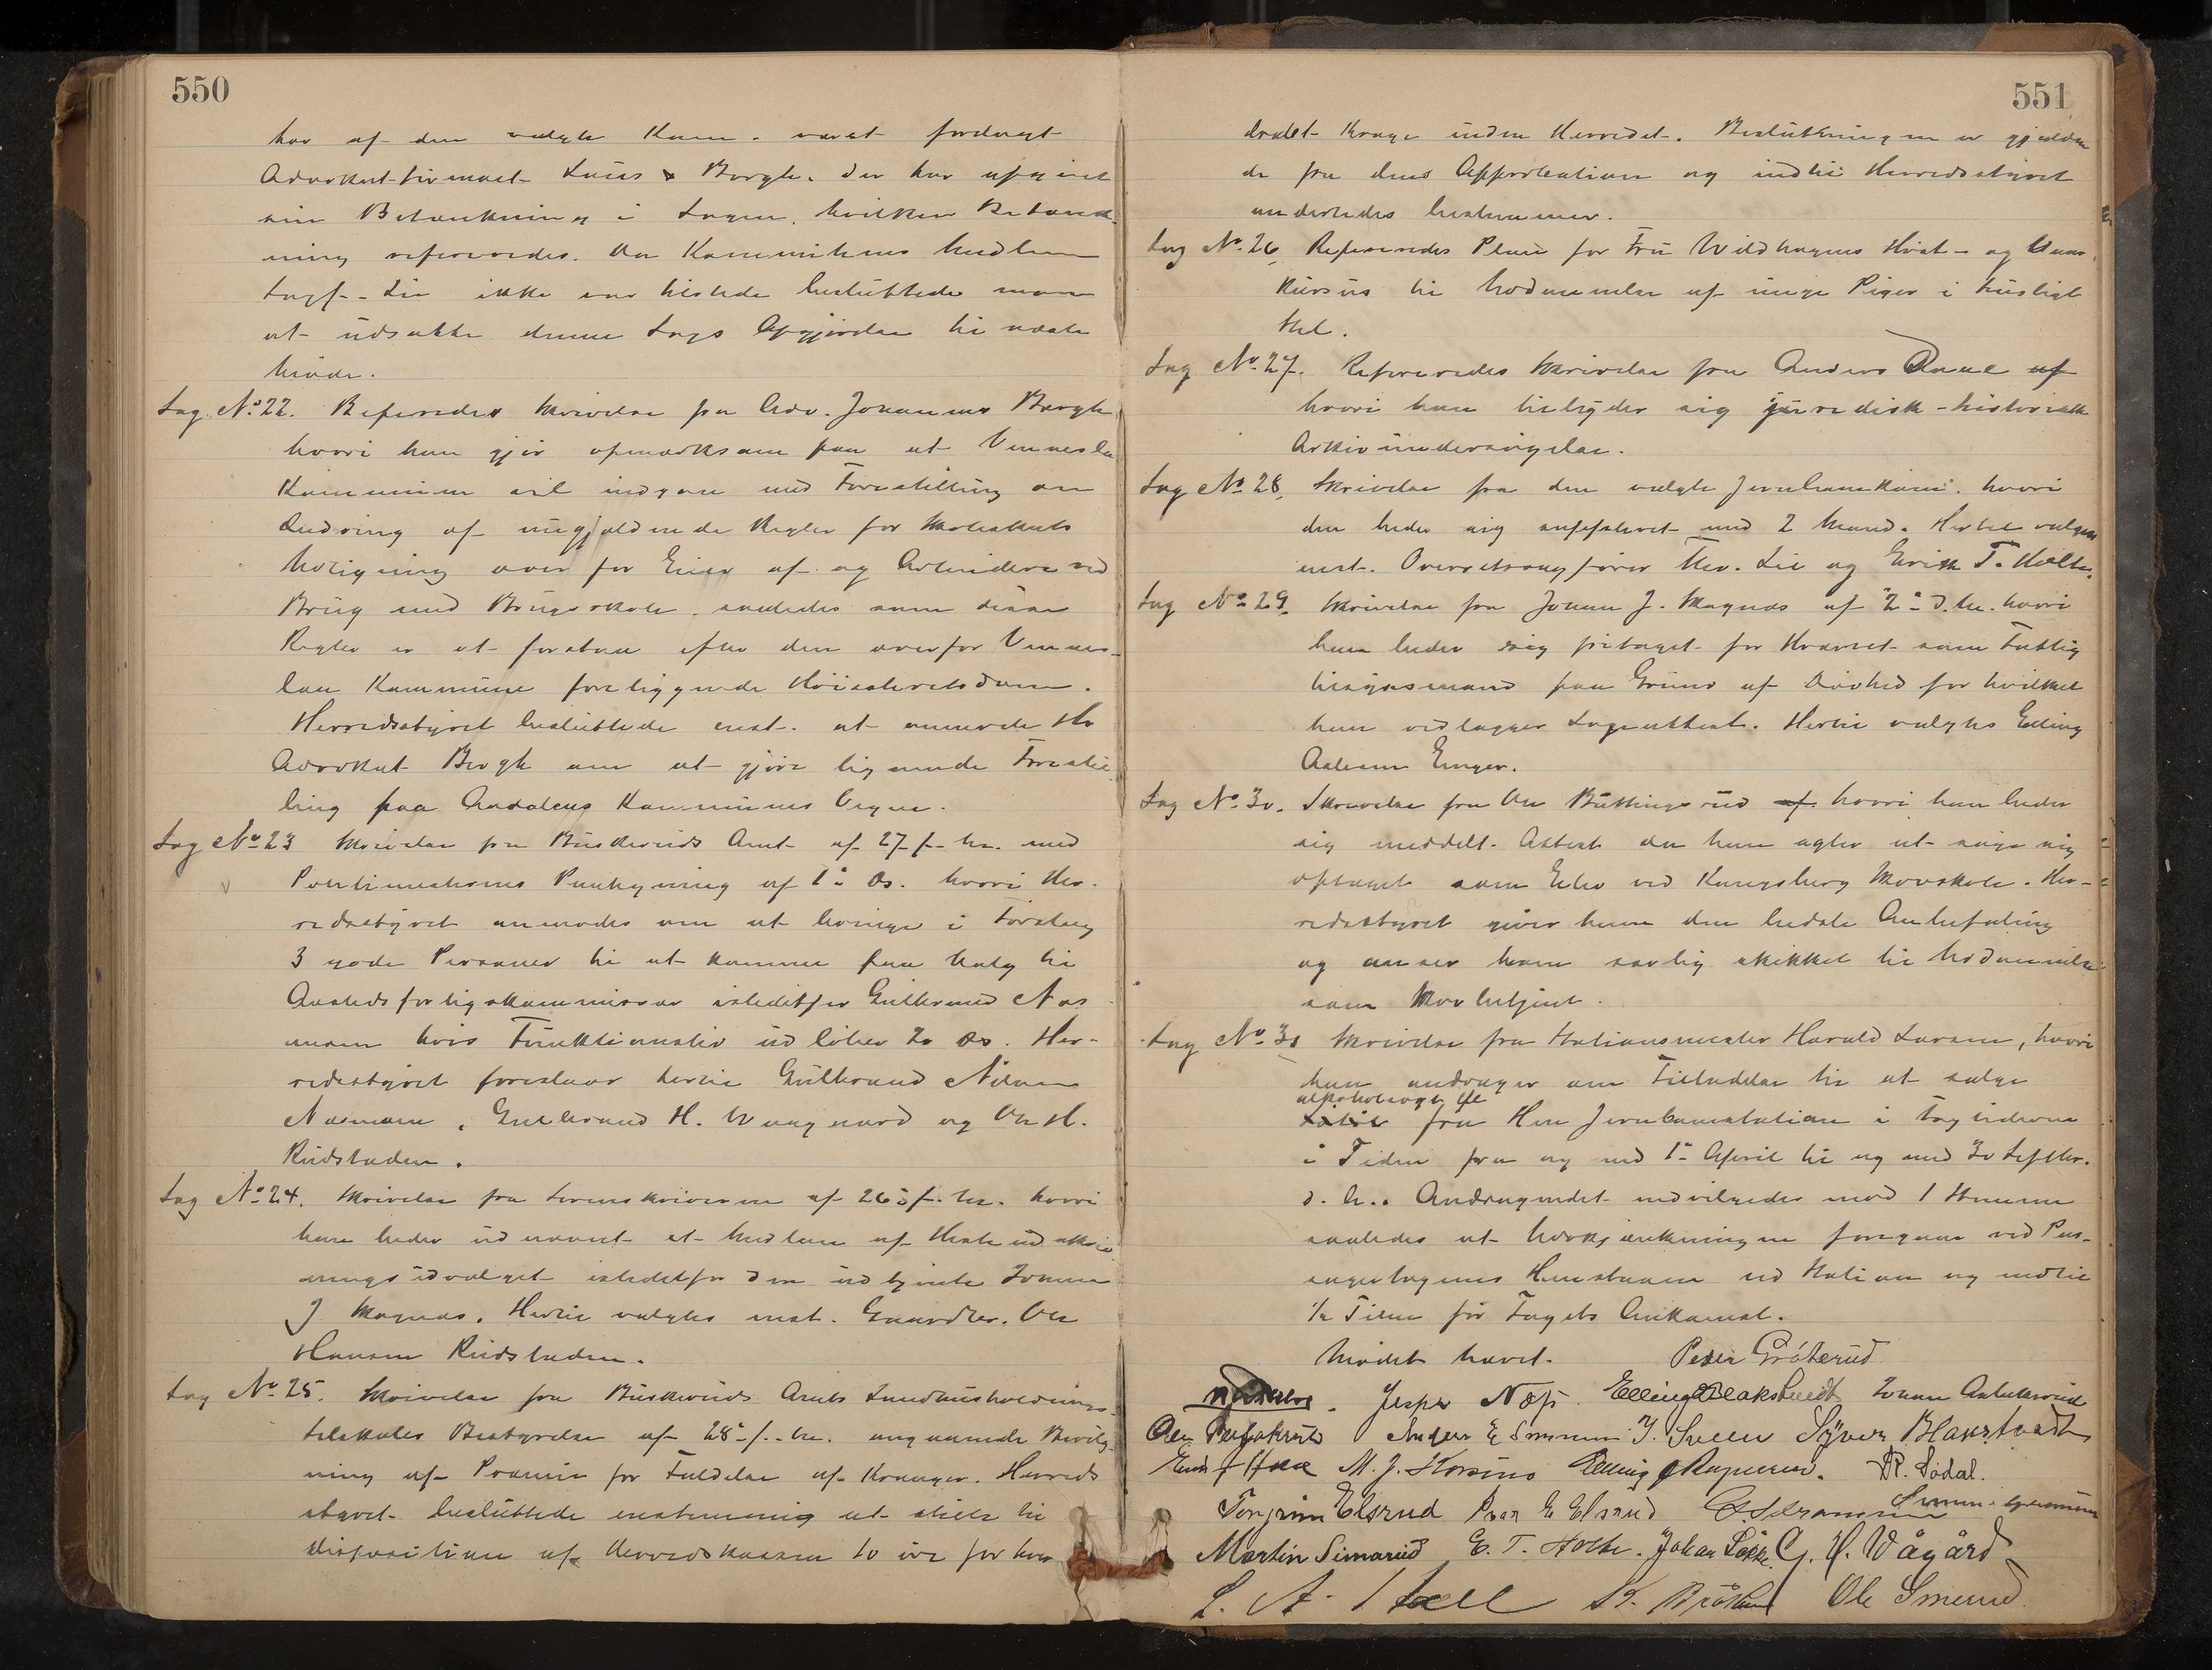 550
har af den valgte Kom. været forelagt
Advokatfirmaet Lous & Bergh. der har afgivet
sin Betænkning i Sagen, hvilken Betænk-
ning refereredes. Da Kommitteens Medlem
Sagf. Lie ikke var tilstede besluttede man
at udsætte denne Sags Afgjørelse til næste
Møde.
Sag No 22. Refereredes Skrivelse fra Adv. Johannes Bergh
hvori han gjør opmærksom paa at Vennesla
Kommune vil indgaa med Forestilling om
Ændring af nugjældende Regler for Skoleskats
ligning over for Eiere af og Arbeidere ved
Brug med Brugsskole, saaledes som disse
Regler er at forstaa efter den overfor Vennes-
lau Kommune foreliggende Høiesteretsdom.
Herredsstyret besluttede enst. at anmode Hr
Advokat Bergh om at gjøre lignende Forestil-
ling paa Aadalens Kommunes Vegne.
Sag No 23 Skrivelse fra Buskeruds Amt af 27 f. M. med
Politimesterens Paategning af 1ste ds. hvori Her-
redsstyret anmodes om at bringe i Forslag
3 gode Personer til at komme paa Valg til
Aastedsforligskommissær istedetfor Gulbrand Næs
moen hvis Funktionstid udløber 20 ds. Her-
redsstyret foreslaar hertil Gulbrand Nilsen
Næsmoen, Gulbrand H. Vaagaard og Ole H.
Rudstaden.
Sag No 24. Skrivelse fra Sorenskriveren af 26de f. M. hvori
han beder udnævnt et Medlem af Hesteudskriv
ningsudvalget istedetfor den udtjente Johan
J Skagnæs. Hertil valgtes enst. Gaardbr. Ole
Hansen Rudstaden.
Sag No 25. Skrivelse fra Buskeruds Amts Landhusholdnings-
selskabs Bestyrelse af 28de f. M. angaaende Bevilg-
ning af Præmie for Fældelse af Kraager. Herreds
styret besluttede enstemmig at stille til
disposition af Herredskassen 10 øre for hver
551
dræbt Kraage inden Herredet. Beslutningen er gjælden
de fra dens Approbation og indtil Herredsstyret
anderledes bestemmer.
Sag No. 26, Refereredes Plan for Fru Wildhagens Høst- og Vaar
kursus til Uddannelse af unge Piger i husligt
Stel.
Sag No. 27. Refereredes Skrivelse fra Anders Daae af
hvori han tilbyder sig juridisk-historisk
Arkivundersøgelse.
Sag No 28, Skrivelse fra den valgte Jernbanekom. hvori
den beder sig suppleret med 2 Mand. Hertil valgtes
enst. Overretssagfører Thv. Lie og Erik T. Holte.
Sag No 29. Skrivelse fra Johan J. Skagnæs af 2den d. M. hvori
han beder sig fritaget for Hvervet som Fattig
tilsynsmand paa Grund af Døvhed for hvilket
han vedlægger Lægeattest. Hertil valgtes Elling
Aslesen Enger.
Sag No. 30. Skrivelse fra Ole Buttingsrud af hvori han beder
sig meddelt Attest da han agter at søge sig
optaget som Elev ved Kongsberg Skovskole. Her-
redsstyret giver ham den bedste Anbefaling
og anser ham særlig skikket til Uddannelse
som Skovbetjent.
Sag No. 31 Skrivelse fra Stationsmester Harald Larsen, hvori
han andrager om Tilladelse til at sælge
alkoholsvagt Øl
fra Hen Jernbanestation i Søgnedagene
i Tiden fra og med 1ste April til og med 30 Septbr.
d. A. Andragendet indvilgedes mod 1 Stemme
saaledes at Udskjænkningen foregaar ved Pas-
sagertogenes Henstaaen ved Station og indtil
1/2 Time før Togets Ankomst.
Mødet hævet. Peder Gråterud
Jesper Næss. Elling Blakstvedt Johan Aslaksrud
Anders E Simensen I. Sveen Syver Blakstvedt
M. J. Horsrud Elling Ragnerud. P. Sødal.
Torgrim Elsrud Peder E Elsrud
Martin Simerud E. T. Holte. Johan Løkke. G. H. Vågård
Ole Smerud.